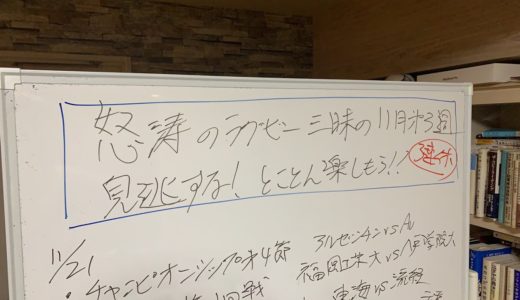 怒涛のラグビー三昧の11月第3週
見逃すな！とことん楽しもう!!
3連休
11/21
・チャンピオンシップ第4節
アルゼンチンvsAu
福岡工業大vs八戸学院大
東海vs流経
1回戦